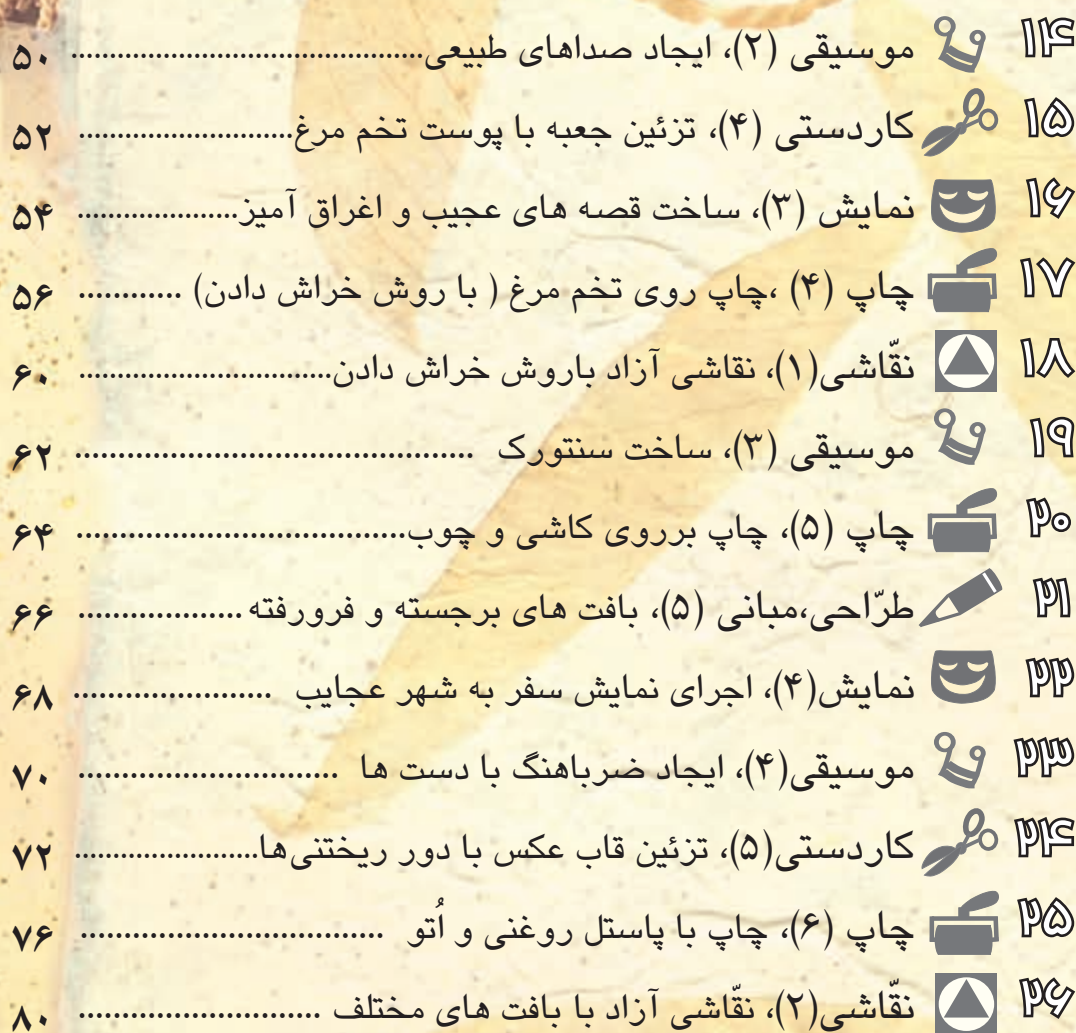 ۱۴ موسیقی (۲)، ایجاد صداهای طبیعی................................................ ۵۰
۱۵ کاردستی (۴)، تزئین جعبه با پوست تخم مرغ............................ ۵۲
۱۶ نمایش (۳)، ساخت قصه های عجیب و اغراق آمیز..................... ۵۴
۱۷ چاپ (۴) ،چاپ روی تخم مرغ ( با روش خراش دادن) ............ ۵۶
۱۸ نقّاشی(۱)، نقاشی آزاد باروش خراش دادن................................. ۶۰
۱۹ موسیقی (۳)، ساخت سنتورک .................................................. ۶۲
۲۰ چاپ (۵)، چاپ برروی کاشی و چوب......................................... ۶۴
۲۱ طرّاحی،مبانی (۵)، بافت های برجسته و فرورفته .................... ۶۶
۲۲ نمایش(۴)، اجرای نمایش سفر به شهر عجایب ........................ ۶۸
۲۳ موسیقی(۴)، ایجاد ضرباهنگ با دست ها ................................ ۷۰
۲۴ کاردستی(۵)، تزئین قاب عکس با دور ریختنی‌ها....................... ۷۲
۲۵ چاپ (۶)، چاپ با پاستل روغنی و اُتو ...................................... ۷۶
۲۶ نقّاشی(۲)، نقّاشی آزاد با بافت های مختلف .............................. ۸۰